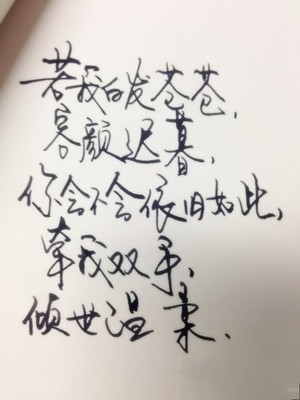 若我白发苍苍,
容颜迟暮,
你会不会依旧如此,
牵我双手,
倾世温柔.